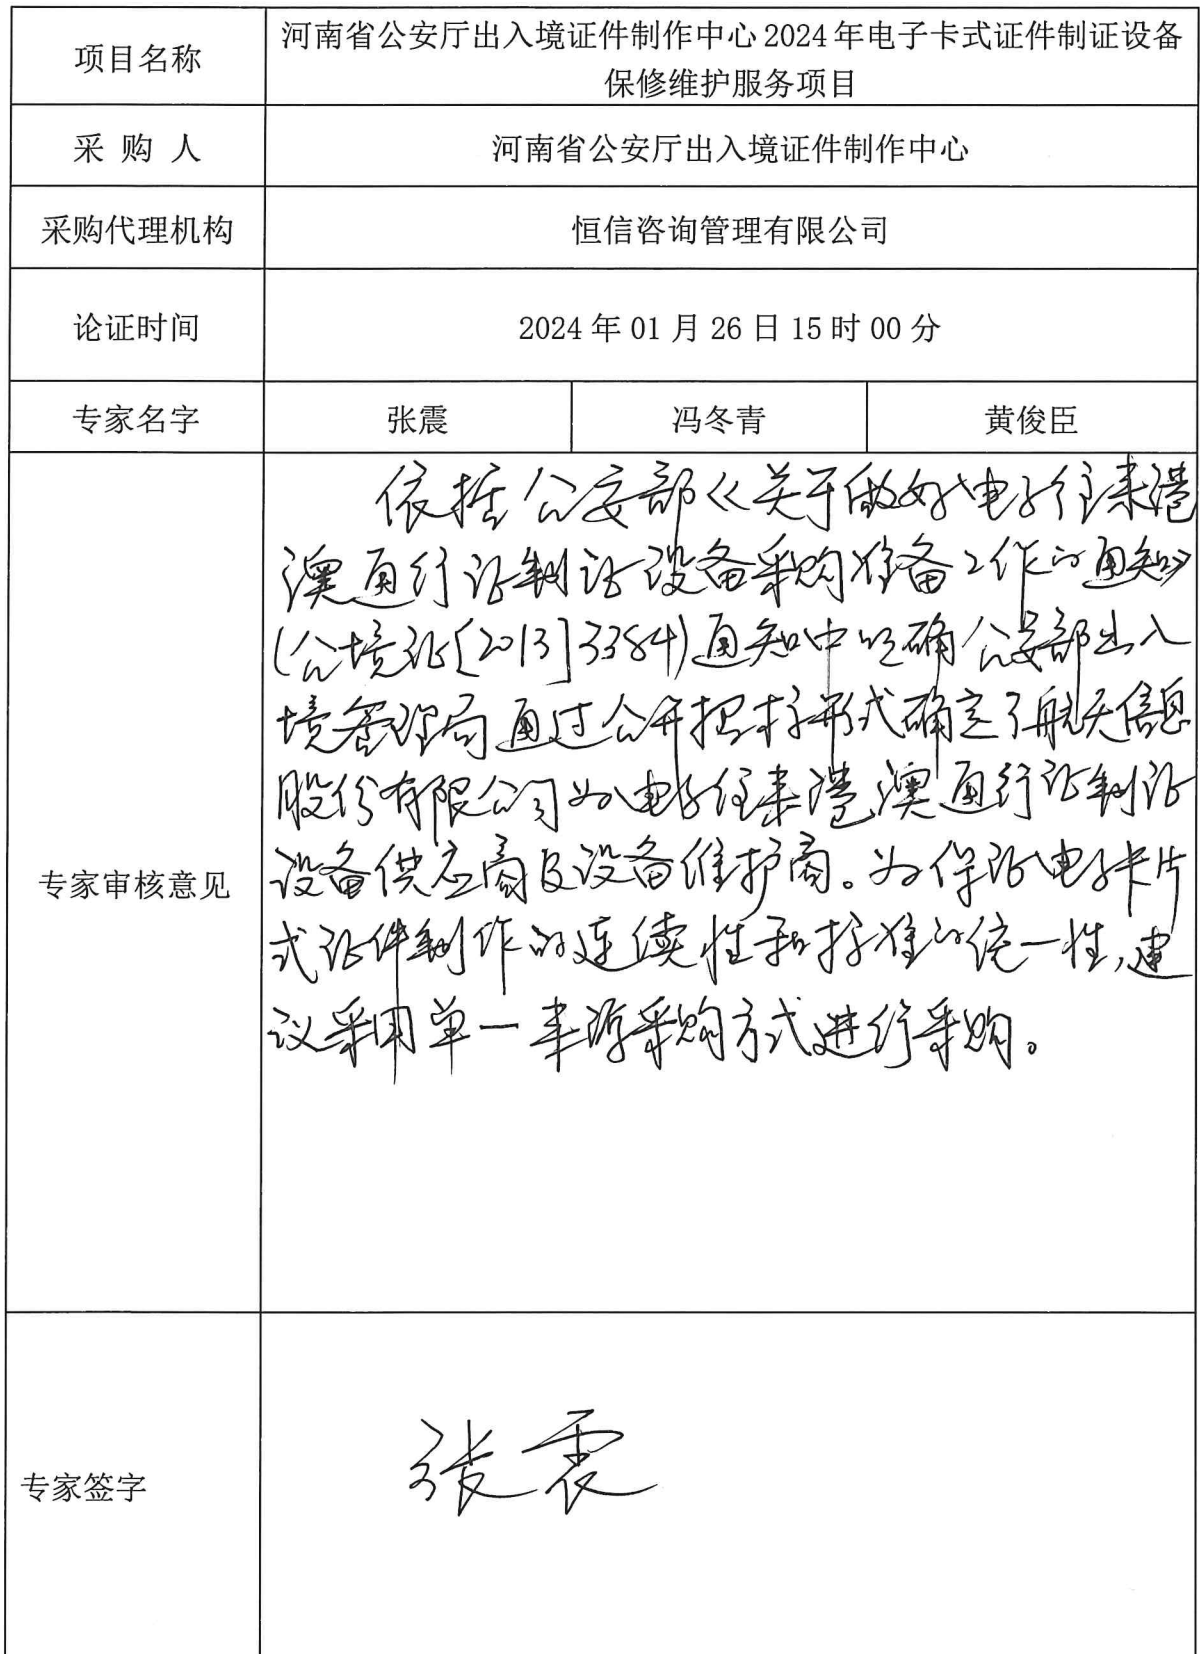 项目名称
河南省公安厅出入境证件制作中心2024年电子卡式证件制证设备
保修维护服务项目
采 购 人
河南省公安厅出入境证件制作中心
采购代理机构
恒信咨询管理有限公司
论证时间
2024年01月26日15时00分
专家名字
张震
冯冬青
黄俊臣
专家审核意见
依据公安部《关于做好电子往来港
澳通行证制证设备采购准备工作的通知》
(公境证[2013]3384)通知中明确公安部出入
境管理局通过公开招标形式确定了航天信息
股份有限公司为电子往来港澳通行证制证
设备供应商及设备维护商。为保证电子卡片
式证件制作的连续性和标准的统一性,建
议采用单一来源采购方式进行采购。
专家签字
张震